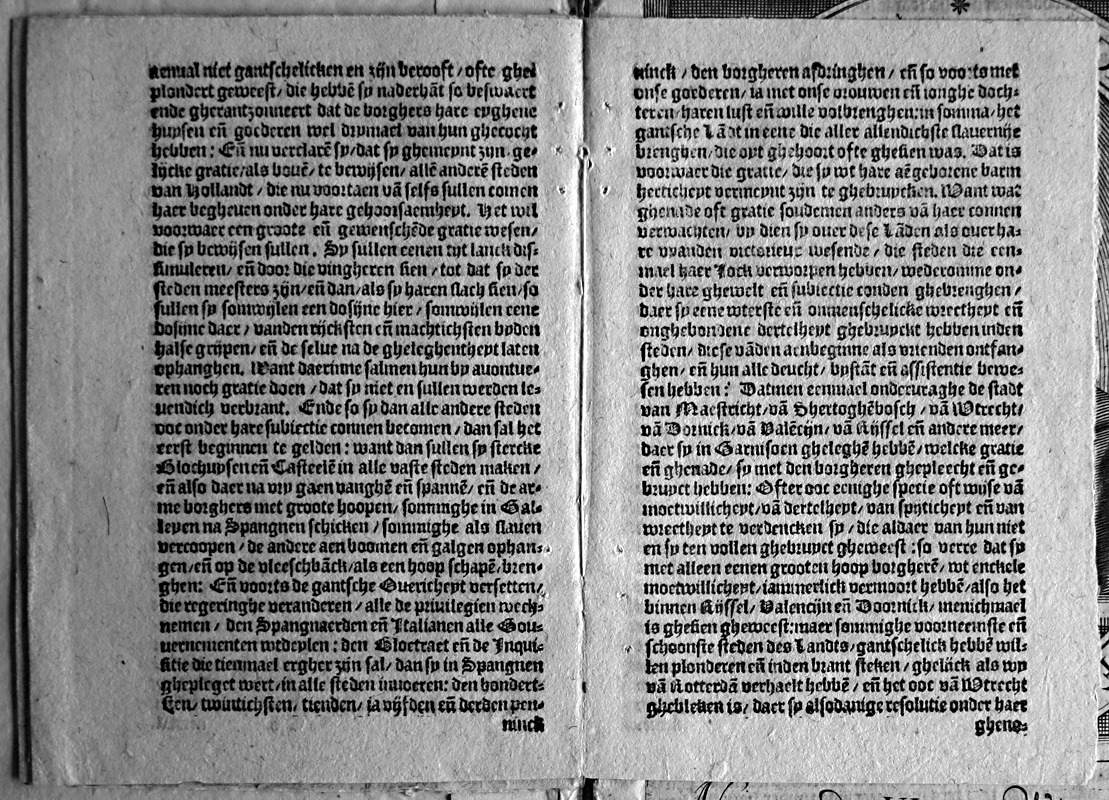 aenual niet gantschelicken en zijn berooft / ofte ghe-
plondert geweest / die hebbē sy naderhāt so beswaert
ende gherantzonneert dat de borghers hare eyghene
huysen eñ goederen wel drymael van hun ghecocht
hebben : Eñ nu verclarē sy / dat sy ghemeynt zijn ge-
lijcke gratie / als bouē / te bewijsen / allē anderē steden
van Hollandt / die nu voortaen vā selfs sullen comen
haer begheuen onder hare gehoorsaemheyt. Het wil
voorwaer een groote eñ gewenschēde gratie wesen /
die sy bewijsen sullen. Sy sullen eenen tijt lanck dis-
simuleren / eñ door die vingheren sien / tot dat sy der
steden meesters zijn / eñ dan / als sy haren slach sien / so
sullen sy somwijlen een dosijne hier / somwijlen eene
dosijne daer / vanden rijcksten eñ machtichsten byden
halse grijpen / eñ de selue na de gheleghentheyt laten
ophanghen. Want daerinne salmen hun by auontue-
ren noch gratie doen / dat sy niet en sullen werden le-
uendich verbrant. Ende so sy dan alle andere steden
ooc onder hare subiectie connen becomen / dan sal het
eerst beginnen te gelden : want dan sullen sy stercke
Blochuysen eñ Casteelē in alle vaste steden maken /
eñ also daer na vry gaen vanghē eñ spannē / eñ de ar-
me borghers met groote hoopen / sommighe in Gal-
leyen na Spangnen schicken / sommighe als slauen
vercoopen / de andere aen boomen eñ galgen ophan-
gen / eñ op de vleeschbāck / als een hoop schapē / bren-
ghen: Eñ voorts de gantsche Ouericheyt versetten /
die regeringhe veranderen / alle de priuilegien wech-
nemen / den Spangnaerden eñ Italianen alle Gou-
uernementen wtdeylen : den Bloetraet eñ de Inqui-
sitie die tienmael ergher zijn sal / dan sy in Spangnen
ghepleget wert / in alle steden inuoeren: den hondert-
sten / twintichsten / tienden / ja vijfden eñ derden pen-
ninck
ninck / den borgheren afdringhen / eñ so voorts met
onse goederen / ia met onse vrouwen eñ ionghe doch-
teren / haren lust eñ wille volbrenghen: in somma / het
gantsche Lādt in eene die aller allendichste slauernije
brenghen / die oyt ghehoort ofte ghesien was. Dat is
voorwaer die gratie / die sy wt hare aēgeborene barm
herticheyt vermeynt zijn te ghebruycken. Want wat
ghenade oft gratie soudemen anders vā haer connen
verwachten / by dien sy ouer dese Lāden als ouer ha-
re vyanden victorieux wesende / die steden die een-
mael haer Jock verworpen hebben / wederomme on-
der hare ghewelt eñ subiectie conden ghebrenghen /
daer sy eene wterste eñ onmenschelicke wreetheyt eñ
onghebondene dertelheyt ghebruyckt hebben inden
steden / diese vāden aenbeginne als vrienden ontfan-
ghen / eñ hun alle deucht / bystāt eñ assistentie bewe-
sen hebben : Datmen eenmael ondervraghe de stadt
van Maestricht / vā Shertoghēbosch / vā Wtrecht /
vā Dornick / vā Valēcijn / vā Rijssel eñ andere meer /
daer sy in Garnisoen gheleghē hebbē / welcke gratie
eñ ghenade / sy met den borgheren ghepleecht eñ ge-
bruyct hebben: Ofter ooc eenighe specie oft wijse vā
moetwillicheyt / vā dertelheyt / van spyticheyt eñ van
wreetheyt te verdencken sy / die aldaer van hun niet
en sy ten vollen ghebruyct gheweest : so verre dat sy
met alleen eenen grooten hoop borgherē / wt enckele
moetwillicheyt / iammerlick vermoort hebbē / also het
binnen Rijssel / Valencijn eñ Doornick / menichmael
is ghesien gheweest: maer sommighe voorneemste eñ
schoonste steden des Landts / gantschelick hebbē wil-
len plonderen eñ inden brant steken / ghelijck als wy
vā Rotterdā verhaelt hebbē / eñ het ooc vā Wtrecht
ghebleken is / daer sy alsodanige resolutie onder haer
ghene-